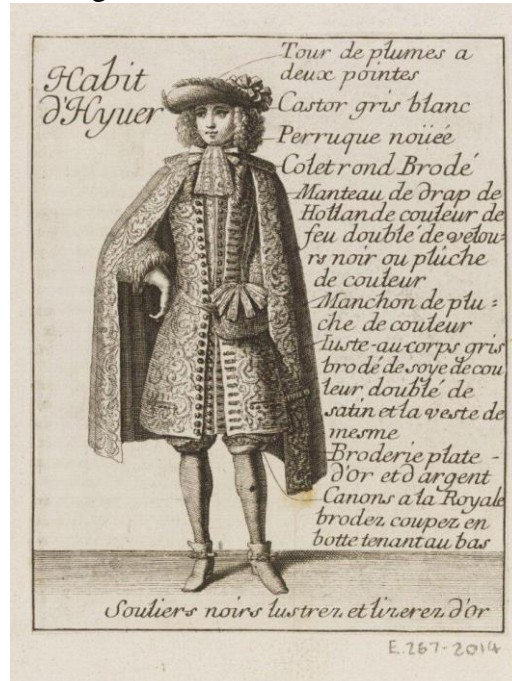 Habit
d'Hyuer
Tour de plumes a
deux pointes
Castor gris blanc
Perruque noüéé
Colet rond Brodé
Manteau de drap de
Hollande couleur de
feu doublé de velou-
rs noir ou plûche
de couleur
Manchon de plu=
che de couleur
Iuste-au-corps gris
brodé de soye de cou
leur doublé de
satin et la veste de
mesme
Broderie plate -
d'Or et d argent
Canons a la Royale
brodez coupez en
botte tenant au bas
Souliers noirs lustrez et lizerez d'Or
E.267-2014